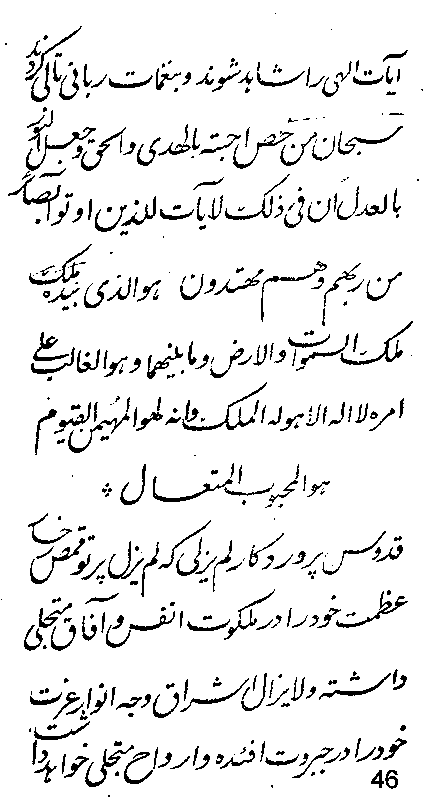 آیات الهی را شاهد شوند و بنغمات ربانی تالی گردند
سبحان من خص احبته بالهدی والحق و جعل النور
بالعدل ان فی ذلک لایات للذین اوتوا بصائر
من ربهم و هم مهتدون هو الذی بیده ملک
ملک السموات والارض و ما بینهما و هو الغالب علی
امره لا اله الا هو له الملک وانه لهو المهیمن القیوم
هو المحبوب المتعال *
قدوس پروردگار لم یزلی که لم یزل پرتو قمص
عظمت خود را در ملکوت انفس و آفاق متجلی
داشته ولا یزال اشراق وجه انوار عزت
خود را در جبروت افئده و ارواح متجلی خواهد داشت
46